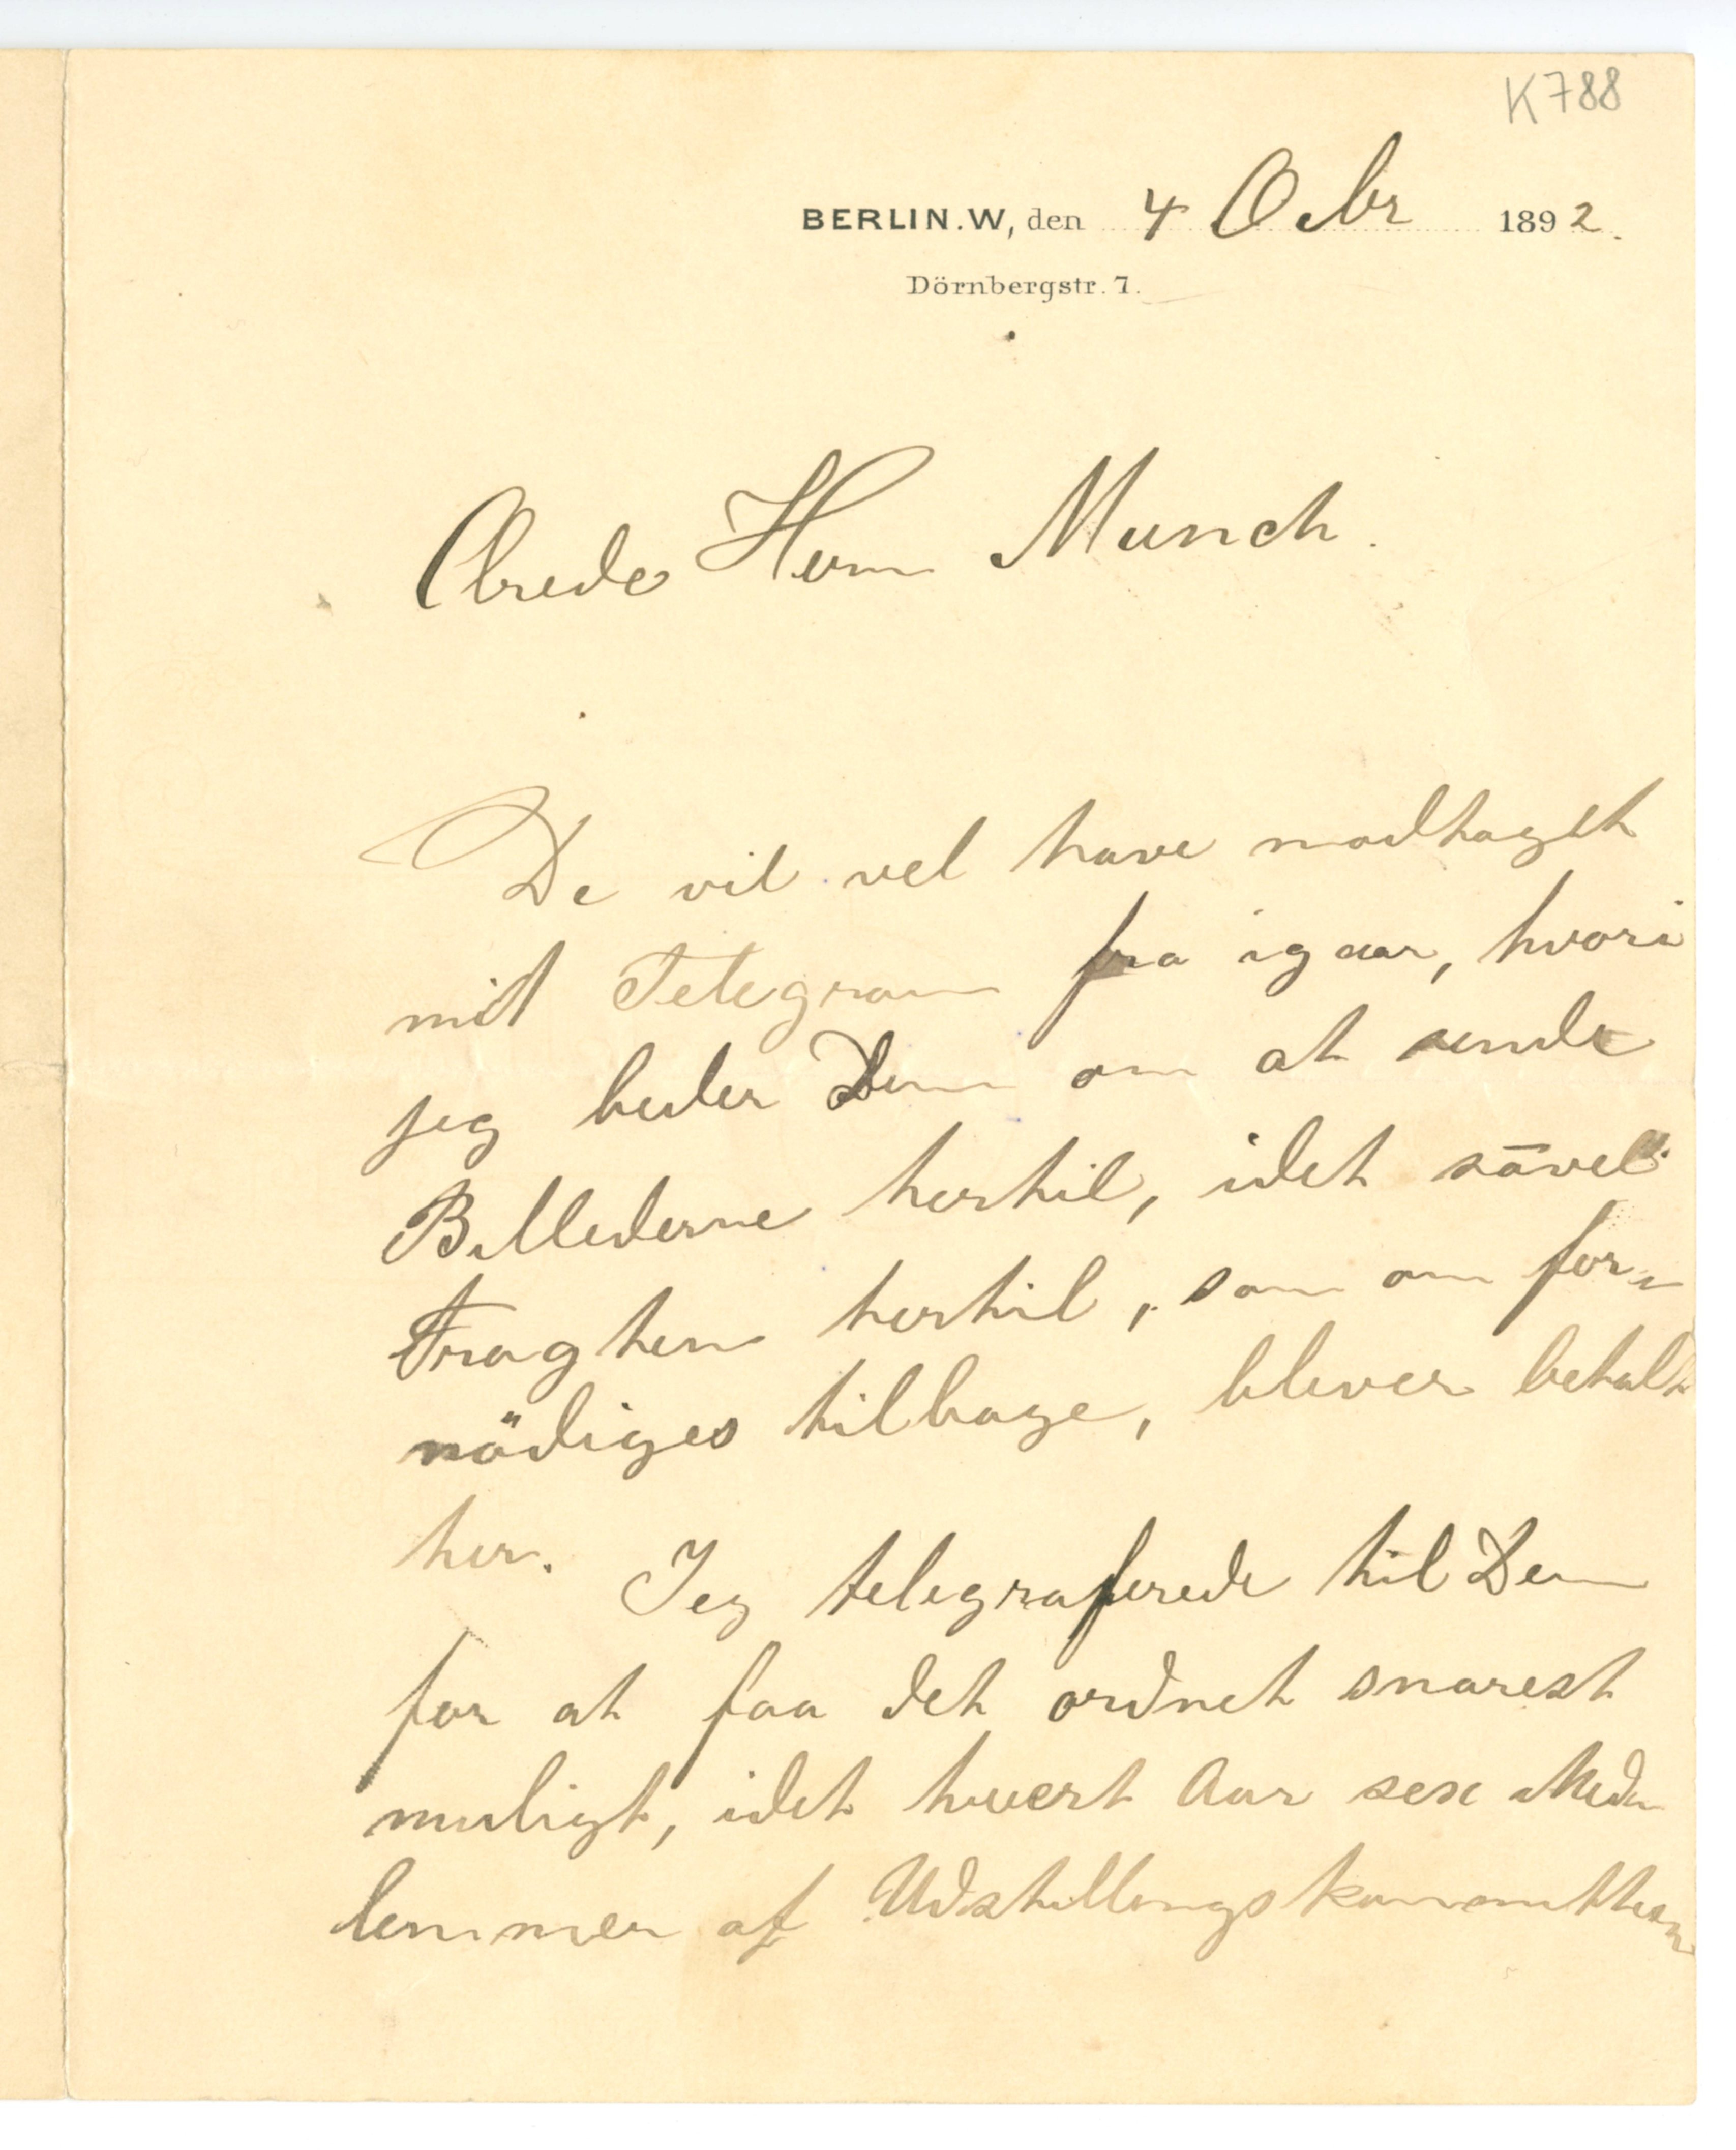 K788
BERLIN.W, den 4 Octbr 1892.
Dörnbergstr. 7.
Ærede Herr Munch.
De vil vel have modtaget
mit Telegram fra igaar, hvori
jeg beder Dem om at sende
Billederne hertil, idet såvel
Fragten hertil, som om for-
nödiges tilbage, bliver betalt
her. Jeg telegraferede til Dem
for at faa det ordnet snarest
muligt, idet hvert Aar sex Med-
lemmer af Udstillingskommitteen